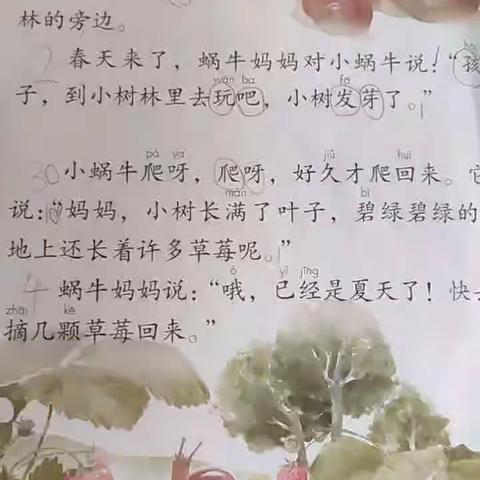 林的旁边。
春天来了，蜗牛妈妈对小蜗牛说：“孩
wán ba fā
子，到小树林里去玩吧，小树发芽了。”
pá ya jiǔ huí
小蜗牛爬呀，爬呀，好久才爬回来。它
mǎn bì
说：“妈妈，小树长满了叶子，碧绿碧绿的
地上还长着许多草莓呢。”
ò yǐ jīng
4 蜗牛妈妈说：“哦，已经是夏天了！快去
zhāi kē
摘几颗草莓回来。”